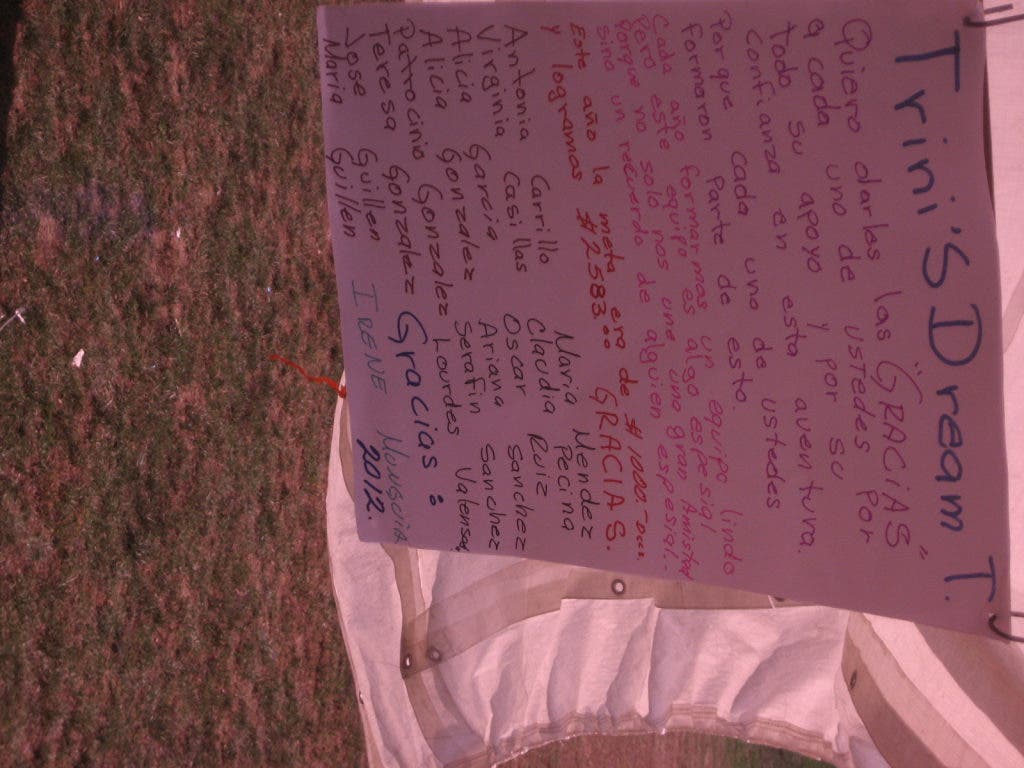 Trini's Dream T.
Quiero darles las "GRACIAS"
a cada uno de ustedes por
todo su apoyo y por su
confianza en esta aventura.
Porque cada uno de ustedes
formaron parte de esto.
Cada año formarmas un equipo lindo
Pero este equipo es algo espesial
Porque no solo nos une una gran Amistad
sino un recuerdo de alguien espesial.
Este año la meta era de $1000.
y logramos $2583.00 GRACIAS.
Antonia Carrillo Maria Mendez
Virginia Casillas Claudia Pecina
Alicia Garcia Oscar Ruiz
Alicia Gonzalez Ariana Sanchez
Patrocinio Gonzalez Serafin Sanchez
Teresa Gonzalez Lourdes
Jose Guillen Gracias
Maria Guillen IRENE 2012.